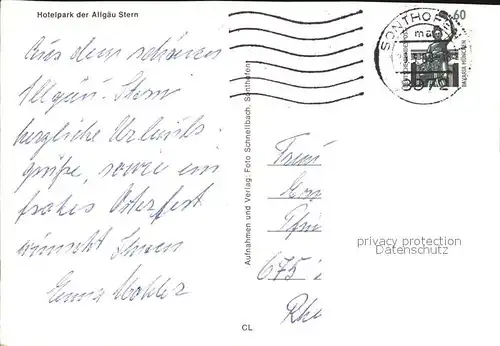 Hotelpark der Allgäu Stern
Aus dem schönen
Allgäu-Stern
herzliche Urlaubs-
grüße, sowie ein
frohes Osterfest
wünscht Ihnen
Erna
Aufnahmen und Verlag: Foto Schnellbach, Sonthofen
CL
SONTHOFEN
8972
60
BAVARIA MÜNCHEN
675
Rhe
privacy protection
Datenschutz